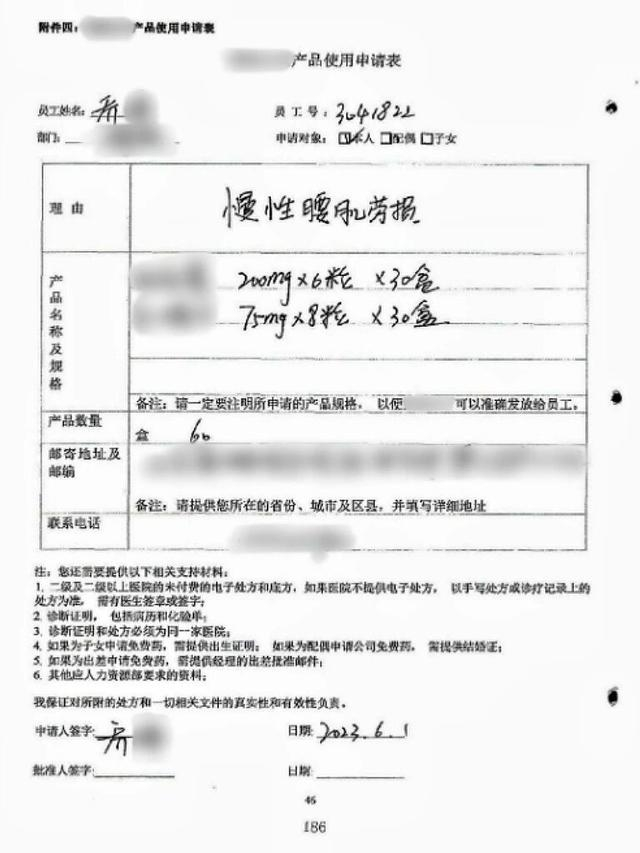 附件四： 产品使用申请表
产品使用申请表
员工姓名： 乔 员工号：3041822
部门： 申请对象：☑本人 □配偶 □子女
理由 慢性腰肌劳损
产品名称及规格 200mg×6粒 ×30盒
75mg×8粒 ×30盒
备注：请一定要注明所申请的产品规格，以便 可以准确发放给员工。
产品数量 盒 60
邮寄地址及邮编
备注：请提供您所在的省份、城市及区县，并填写详细地址
联系电话
注：您还需要提供以下相关支持材料：
1. 二级及二级以上医院的未付费的电子处方和底方，如果医院不提供电子处方，以手写处方或诊疗记录上的
处方为准，需有医生签章或签字；
2. 诊断证明，包括病历和化验单；
3. 诊断证明和处方必须为同一家医院；
4. 如果为子女申请免费药，需提供出生证明；如果为配偶申请公司免费药，需提供结婚证；
5. 如果为出差申请免费药，需提供经理的出差批准邮件；
6. 其他应人力资源部要求的资料；
我保证对所附的处方和一切相关文件的真实性和有效性负责。
申请人签字： 乔 日期：2023.6.1
批准人签字： 日期：
46
186